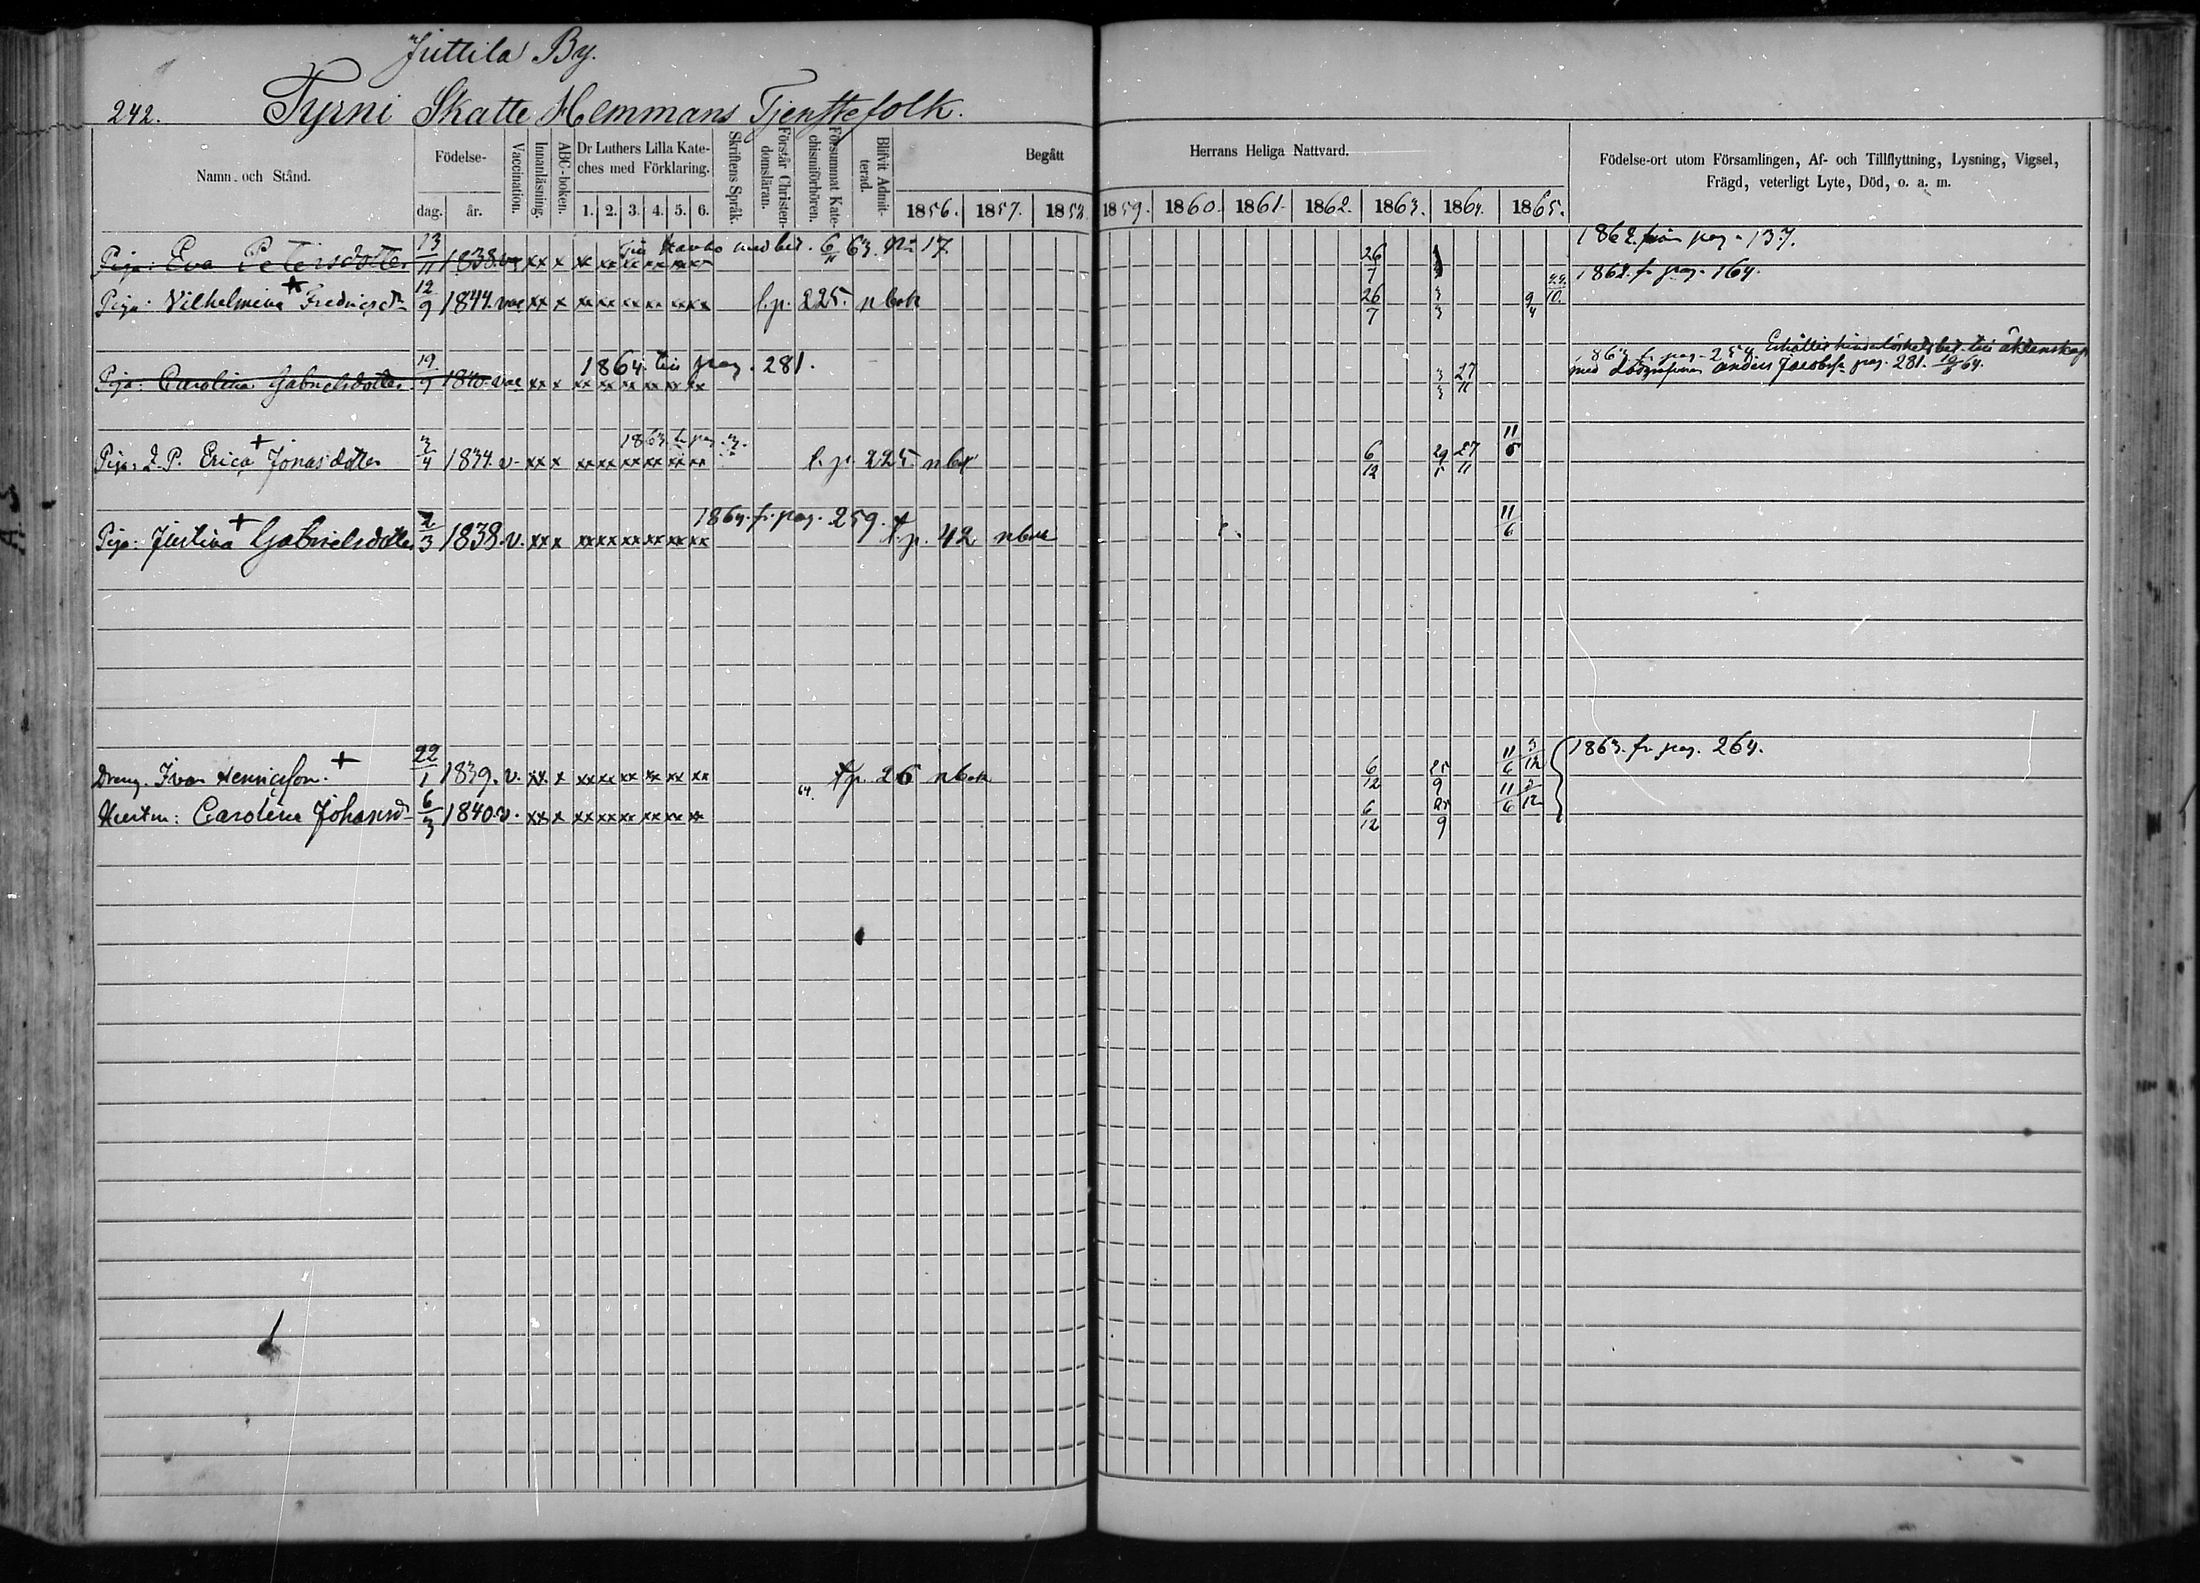 Juttila By.
242. Tyrni Skatte Hemmans Tjenstefolk.
Namn och Stånd.
Födelse-
dag. år.
Vaccination.
Innanläsning.
ABC-boken.
Dr Luthers Lilla Kate-
ches med Förklaring.
1. 2. 3. 4. 5. 6.
Skriftens Språk.
Förstår Christen-
domsläran.
Försummat Kate-
chismiförhören.
Blifvit Admit-
terad.
Begått
Herrans Heliga Nattvard.
1856. 1857. 1858. 1859. 1860. 1861. 1862. 1863. 1864. 1865.
Födelse-ort utom Församlingen, Af- och Tillflyttning, Lysning, Vigsel,
Frägd, veterligt Lyte, Död, o. a. m.
Piga: Eva Petersdotter 13/11 1838. vac xx x x xx xx xx xx xx med bet. 6/11 63. No 17 26/7 1862. från pag. 137.
Piga: Vilhelmina Fredricsdr 12/9 1844. vac xx x xx xx xx xx xx xx f. p. 225. nbok 26/7 3/3 9/4 1862. fr pag. 164.
Piga: Carolina Gabrielsdotter 19/9 1840. vac xx x xx xx xx xx xx xx 1864. till pag. 281. 3/3 27/11 1863 fr pag. 254 Erhållit hinderlöshetsbet. till äktenskap
med Anders Jacobs. pag. 281. 64.
Piga: I. P. Erica Jonasdotter 3/4 1834. v. xx x xx xx xx xx xx xx 1863 fr pag. f. p. 225. nbok 6/12 29/5 27/11 11/6
Piga: Justina Gabrielsdotter 2/3 1838. v. xx x xx xx xx xx xx xx 1864. fr. pag. 259. f. p. 42 nbok 11/6
Dreng. Ivar Henricsson. 22/1 1839. v. xx x xx xx xx xx xx xx f. p. 26 nbok 6/12 25/9 11/6 3/12 1863. fr pag. 264.
Hustru: Carolina Johansdr 6/3 1840. v. xx x xx xx xx xx xx xx 64. 6/12 25/9 11/6 3/12